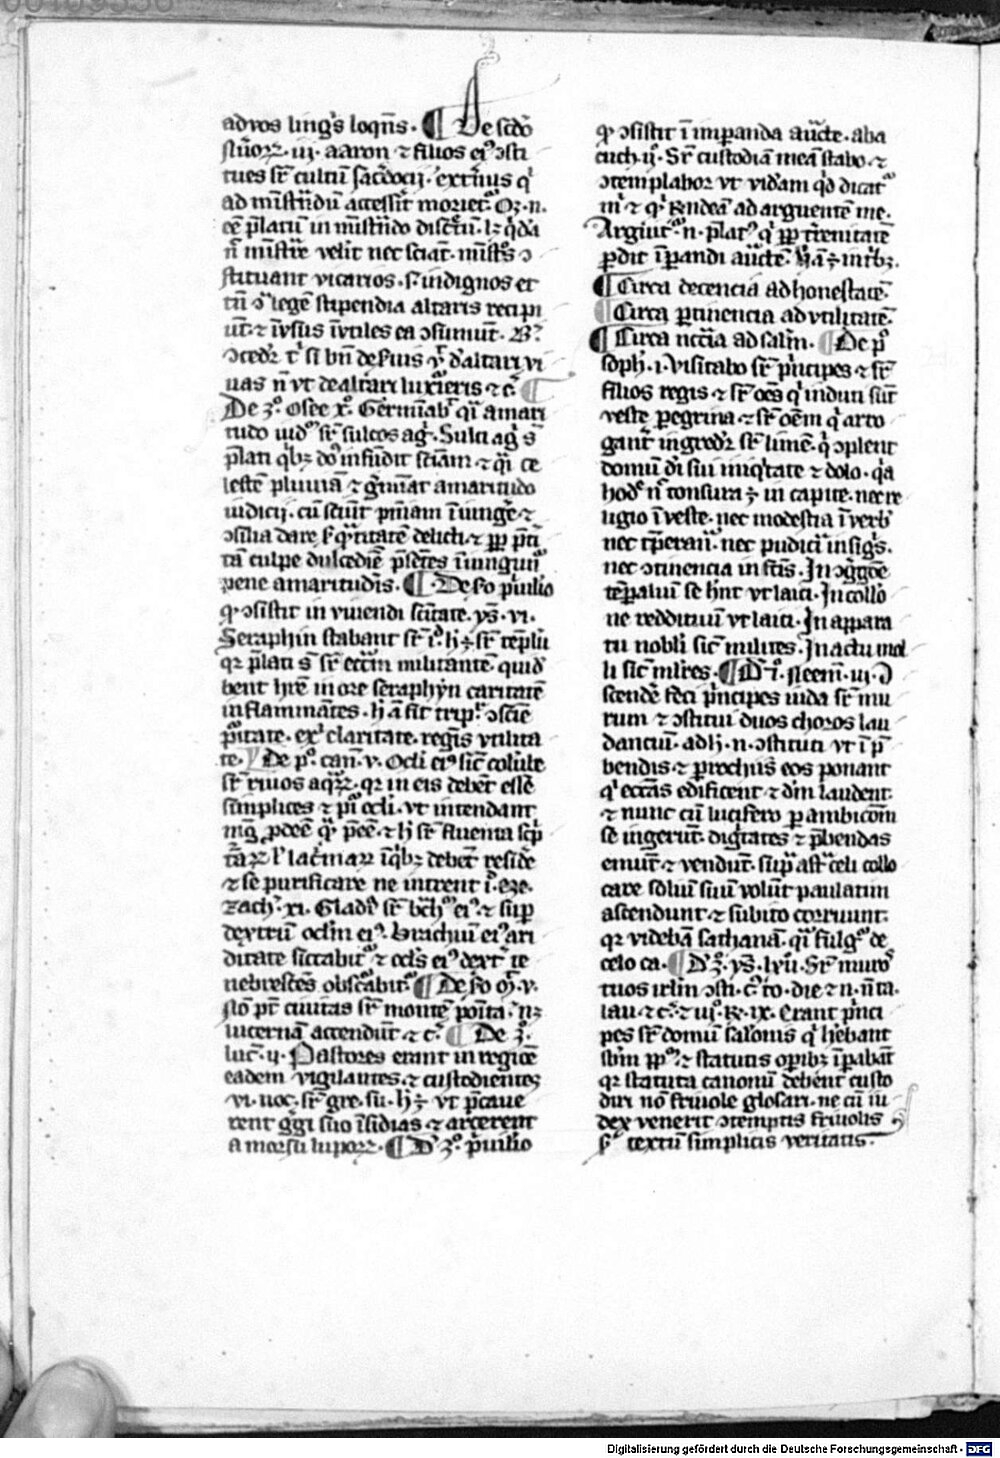 ad vos lingᷤs loqñs. ¶ De scďo
Nũorꝝ. iij. aaron ⁊ filios eiꝰ ↄsti
tues sr̃ cultũ sac̃docij. ext͛nus qͥ
ad mĩstñdũ accessĩt morietʳ. Oꝫ. n.
eẽ p̃latũ in mĩstñdo discretũ. lꝫ qͥdã
nõ mĩstr̃e velit nec sciãt. mĩstᷤos ↄ
stituant vicarios. sꝫ indignos et
tñ ↄͣ legẽ stipendia altaris recipi
ũt. ⁊ ĩvsus ĩvtiles ea ↄsumũt. Bꝰ
ↄcedʳ tͥ si bñ deseruis vͭ de altari vi
uas nõ vt de altari luxͥeris ⁊ cͭ ¶
De 3º. Osee xº. Germĩabͭ qͣi amari
tudo iudͫ sr̃ sulcos agͥ. Sulci agͥ sͭ
p̃lati qͥbꝫ do͛ infũdit sciẽtiam ⁊ qͣi ce
lestẽ pluuiã ⁊ gͥminar͛ amaritudo
iudicij. cũ sciũt pñiam ĩiunge͛ ⁊
ↄsilia dare ẜ qͣtitatẽ delicti ⁊ ꝓp p̃t͛i
tã culpe dulcediẽ p̃sẽtes ĩiungũtʳ
pene amaritudĩs. ¶ De Fo pͥuilio
qͩ ↄsistit in viuendi scĩtate. ys̃. vi.
Seraphin stabant sr̃ iᵈ. h̾ ÷ sr̃ tẽplũ
qꝛ p̃lati sͭ sr̃ ecc̃m militantẽ qui dͤ
bent hr̃e in ore seraphyn caritatẽ
inflammãtes. h̾ aũt sit tripͬ. ↄsciẽ
pͥitate. exͥ claritate. regĩs vtilita
te. ¶ De pº. can̾. v. Ocli eiꝰ sic̃ colũbe
sr̃ riuos aqͣꝝ. qꝛ in eis debẽt esse
simplices ⁊ pij ocli. vt intendant
mͣg ꝓdeẽ qͣ p̃eẽ ⁊ h̾ sr̃ fluenta scp
tãꝝ lͥ lac͛maꝝ ĩ qͥbꝫ debẽt reside͛
⁊ se purificare ne intrent iᵈ. eze.
zach. xi. Gladiͥ sr̃ bchͫ eiꝰ. ⁊ suꝑ
dextrũ oclm̃ eiꝰ. brachiũ eiꝰ ari
ditate siccabitʳ ⁊ oclꝰs eiꝰ dextͬ te
nebrescẽs obscͬabitʳ ¶ De Fo m̃. v.
Nõ pt̃ ciuitas sr̃ montẽ poĩta. nꝫ
lucernã accendũt ⁊ cͭ ¶ De 3º.
luc̾. ij. Pastores erant in regiõe
eadem vigilantes ⁊ custodientes
vi. noc. sr̃ gre. su. h̾ ÷ vt p̃caue
rent gͥgi suo ĩsidias ⁊ arcerent
a morsu lupoꝝ. ¶ D͛ 3º. pͥuilio
qͩ ↄsistit ĩ imꝑanda auct̃e. aba
cuch ij. Sr̃ custodiã meã stabo ⁊
ↄtemplabor vt vidẽam qͥd dicatʳ
mͥ ⁊ qͥ rñdeã ad arguentẽ me.
Argiutʳ. n. p̃latꝰ qͥ ꝓp t͛renitatẽ
ꝑdit ĩꝑandi auct̃e.
¶ Circa decencia ad honestatẽ.
¶ Circa ꝑtinencia ad vtilitatẽ.
¶ Circa nccͥia ad saltm̃. ¶ De pº
soph. i. visitabo sr̃ pͥncipes ⁊ sr̃
filios regis ⁊ sr̃ oẽs qͥ induti sũt
veste ꝑegrina. ⁊ sr̃ oẽm qͥ arro
gant͛ ingredʳ sr̃ limẽ. qͥ ↄplent
domũ dĩ sui iniqͥtate ⁊ dolo. qͣa
hodͤ nͭ tonsura ÷ in capite. nec re
ligio ĩ veste. nec modestia ĩ verbͥ
nec tp̃erantia. nec pudicͥ insigᷤs.
nec ↄtinencia in fc̃is. In ↄgͣgᷤõe
tẽpͣaliũ se hñt vt laici. In collõ
ne reddituũ vt laici. In appara
tu nobli sic̃ milites. In actu mͣl
li sic̃ mlites. ¶ D͛ iᵈ. Neem̃. iij. ↄ
scendẽ feci pͥncipes iuda sr̃ mu
rum ⁊ ↄstitui duos choros lau
danciũ. ad h̾. n. ↄstituti vt ĩ p̃
bendis ⁊ ꝑrochijs eos ponant
qͥ ecc̃as edificent ⁊ dm̃ laudent.
⁊ nunc cũ lucifero ꝑ ambic̃om
se ingerũt. digͥtates ⁊ p̃bendas
emũt ⁊ vendũt. supͣ astͬ celi collo
care soliũ suũ volũt paulatim
ascendunt ⁊ subito corruunt.
qꝛ videbã sathanã. qͣi fulgͬ de
celo ca. ¶ D͛ 3º. ys̃. lxij. Sr̃ muroˢ
tuos irlm̃ ↄsti. cᵒ. to. die ⁊ n. ñ ta.
lau. ⁊ cͭ. ⁊ iijº. R̃. ix. Erant pͥnci
pes sr̃ domũ salonis qͥ hẽbant
sbm̃ ppˡ ⁊ statutis oꝑibꝫ ĩꝑabãt
qꝛ statuta canonũ debent custo
diri nõ friuole glosari. ne cũ iu
dex venerit ↄtemptis friuolis
sͬ textũ simplicis veritatis.
Digitalisierung gefördert durch die Deutsche Forschungsgemeinschaft - DFG